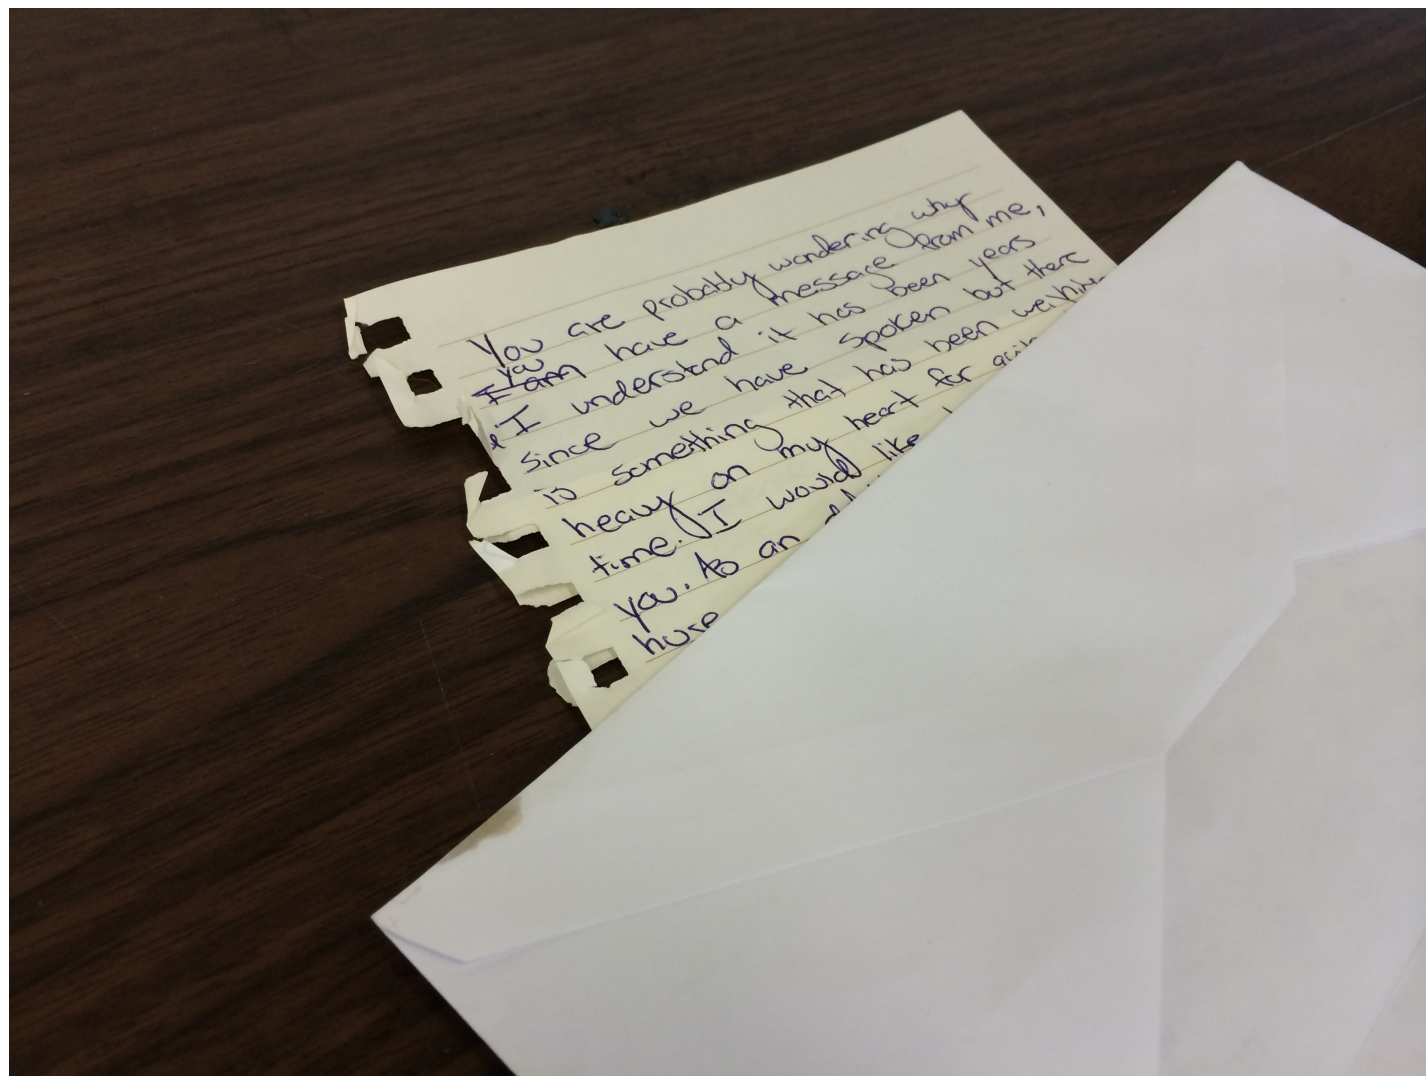 You are probably wondering why
you
I am have a message from me,
& I understand it has been years
since we have spoken but there
is something that has been
heavy on my heart for
time. I would like
you. As an